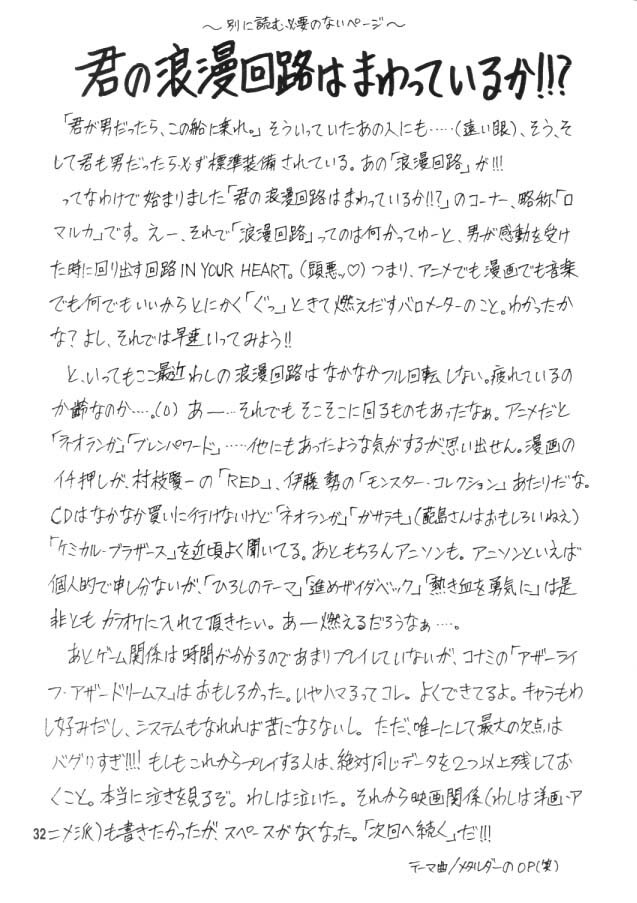 ～別に読む必要のないページ～
君の浪漫回路はまわっているか!!?
「君が男だったら、この船に乗れ。」そういっていたあの人にも……(遠い眼)、そう、そ
して君も男だったら必ず標準装備されている。あの「浪漫回路」が!!!
ってなわけで始まりました「君の浪漫回路はまわっているか!!?」のコーナー、略称「ロ
マルカ」です。えー、それで「浪漫回路」ってのは何かってゆーと、男が感動を受け
た時に回り出す回路IN YOUR HEART。(頭悪ッ♡)つまり、アニメでも漫画でも音楽
でも何でもいいからとにかく「ぐっ」ときて燃えだすバロメーターのこと。わかったか
な?よし、それでは早速いってみよう!!
と、いってもここ最近わしの浪漫回路はなかなかフル回転しない。疲れているの
か齢なのか…。(0)あー…それでもそこそこに回るものもあったなぁ。アニメだと
「ネオランガ」「ブレンパワード」……他にもあったような気がするが、思い出せん。漫画の
イチ押しが、村枝賢一の「RED」、伊藤勢の「モンスター・コレクション」あたりだな。
CDはなかなか買いに行けないけど「ネオランガ」「ガサラキ」(蓜島さんはおもしろいねえ)
「ケミカル・ブラザース」を近頃よく聞いてる。あともちろんアニソンも。アニソンといえば
個人的で申し分ないが、「ひろしのテーマ」「進めザイダベック」「熱き血を勇気に」は是
非ともカラオケに入れて頂きたい。あー燃えるだろうなぁ…。
あとゲーム関係は時間がかかるのであまりプレイしていないが、コナミの「アザーライ
フ・アザードリームス」はおもしろかった。いやハマるってコレ。よくできてるよ。キャラもわ
し好みだし、システムもなれれば苦にならないし。ただ、唯一にして最大の欠点は
バグりすぎ!!!!もしもこれからプレイする人は、絶対同じデータを2つ以上残してお
くこと。本当に泣きを見るぞ。わしは泣いた。それから映画関係(わしは洋画・ア
ニメ派)も書きたかったが、スペースがなくなった。「次回へ続く」だ!!!
32
テーマ曲/メタルダーのOP(笑)